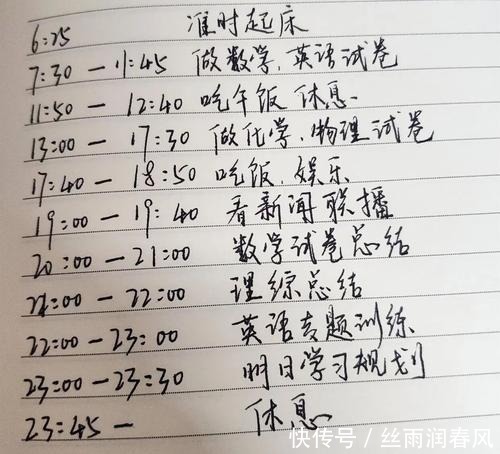 6:25 准时起床
7:30 — 11:45 做数学、英语试卷
11:50 — 12:40 吃午饭 休息
13:00 — 17:30 做化学、物理试卷
17:40 — 18:50 吃饭、娱乐
19:00 — 19:40 看新闻联播
20:00 — 21:00 数学试卷总结
21:00 — 22:00 理综总结
22:00 — 23:00 英语专题训练
23:00 — 23:30 明日学习规划
23:45 — 休息
快传号／丝雨润春风